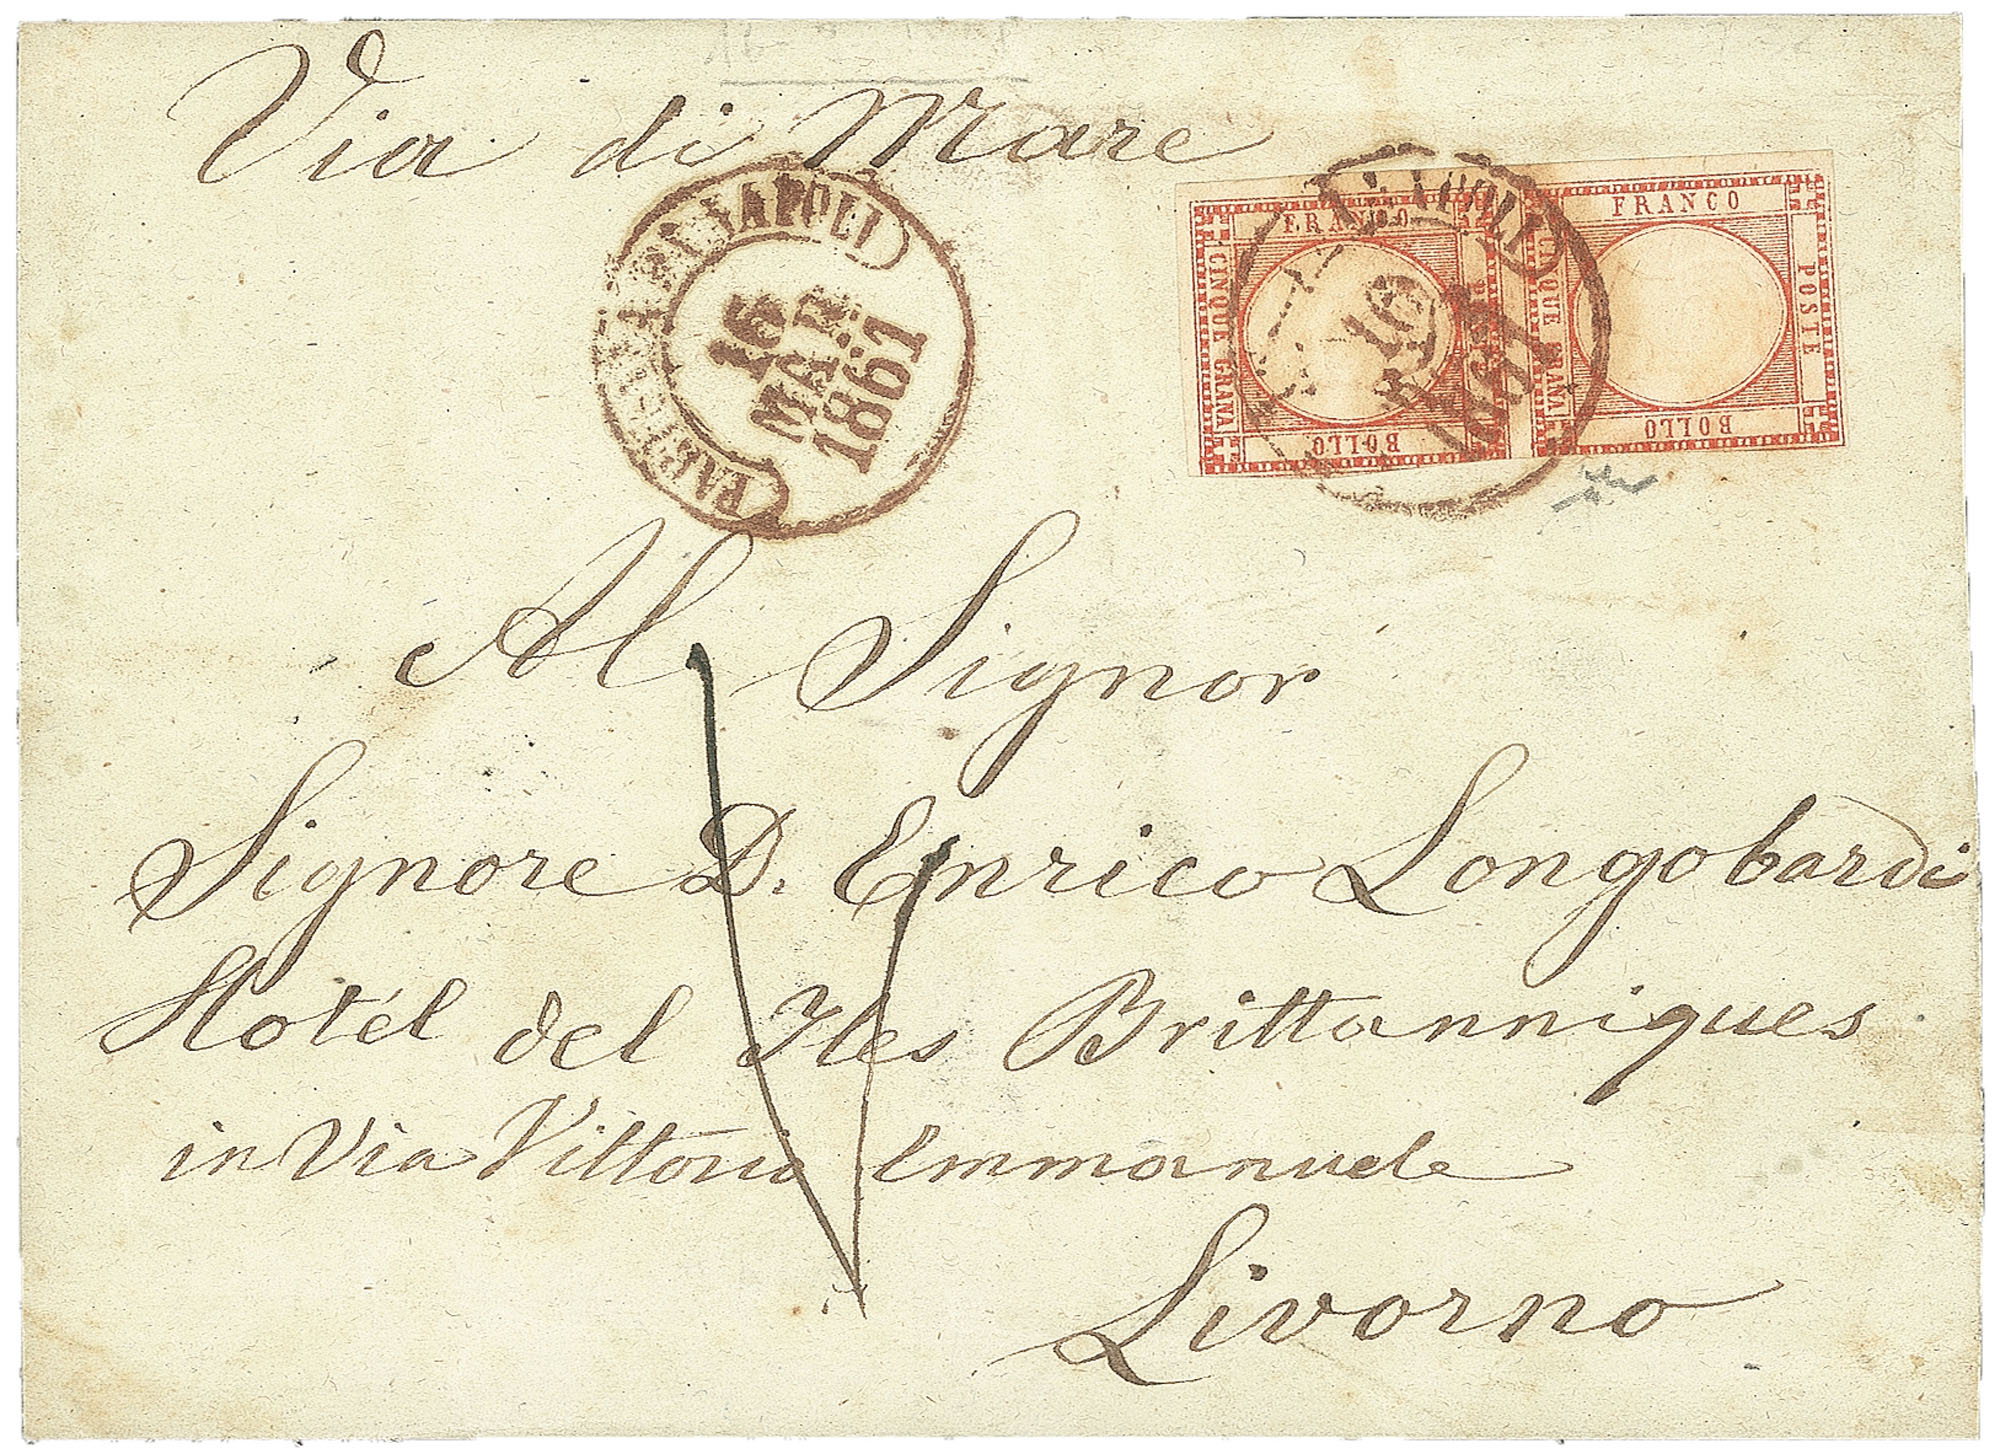 Via di Mare
PARTENZA DA NAPOLI
16
MAR
1861
NAPOLI
16
1861
FRANCO
CINQUE GRANA
BOLLO
FRANCO
CINQUE GRANA
POSTE
BOLLO
Al Signor
Signore D. Enrico Longobardi
Hotél del Iles Brittanniques
in Via Vittorio Emmanuele
Livorno